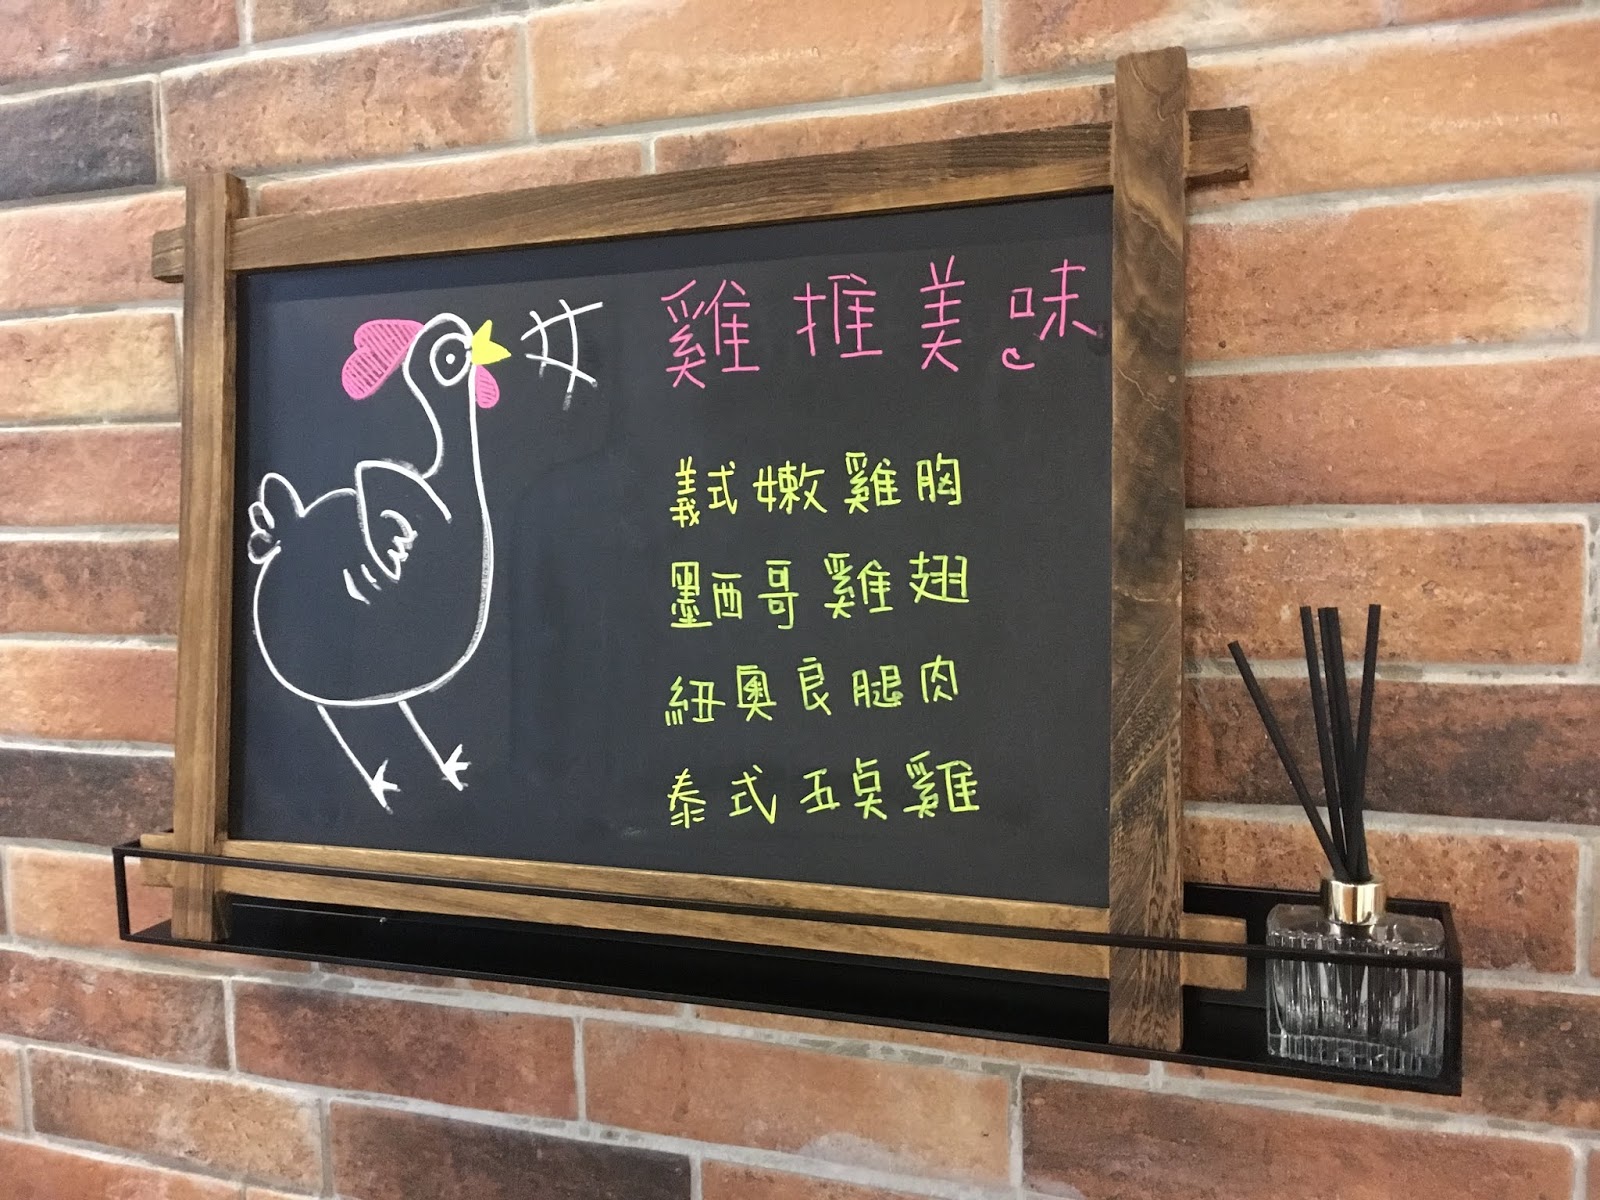 雞推美味
義式嫩雞胸
墨西哥雞翅
紐奧良腿肉
泰式五桌雞